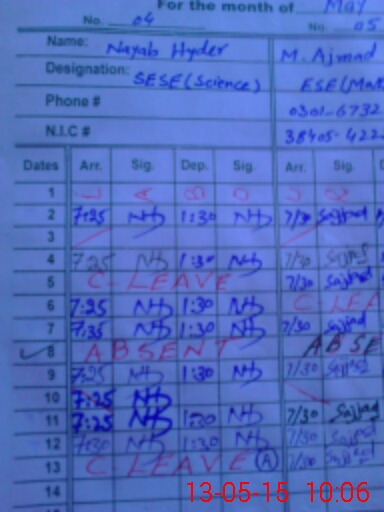 For the month of May
No. 04 No. 05
Name: Nayab Hyder M. Ajmad
Designation: SESE (Science) ESE (Mat
Phone # 0301-6732
N.I.C # 38405-422
Dates Arr. Sig. Dep. Sig. Arr. Sig.
1
2 7:25 NH 1:30 NH 7/30 Sajjad
3
4 7:25 NH 1:30 NH 7/30 Sajjad
5 C-LEAVE 7/30 Sajjad
6 7:25 NH 1:30 NH C-LEA
7 7:35 NH 1:30 NH 7/30 Sajjad
8 ABSENT ABSE
9 7:25 NH 1:30 NH 7/30 Sajjad
10 7:25 NH
11 7:25 NH 1:30 NH 7/30 Sajjad
12 7:30 NH 1:30 NH 7/30 Sajjad
13 C LEAVE A Sajjad
14
13-05-15 10:06